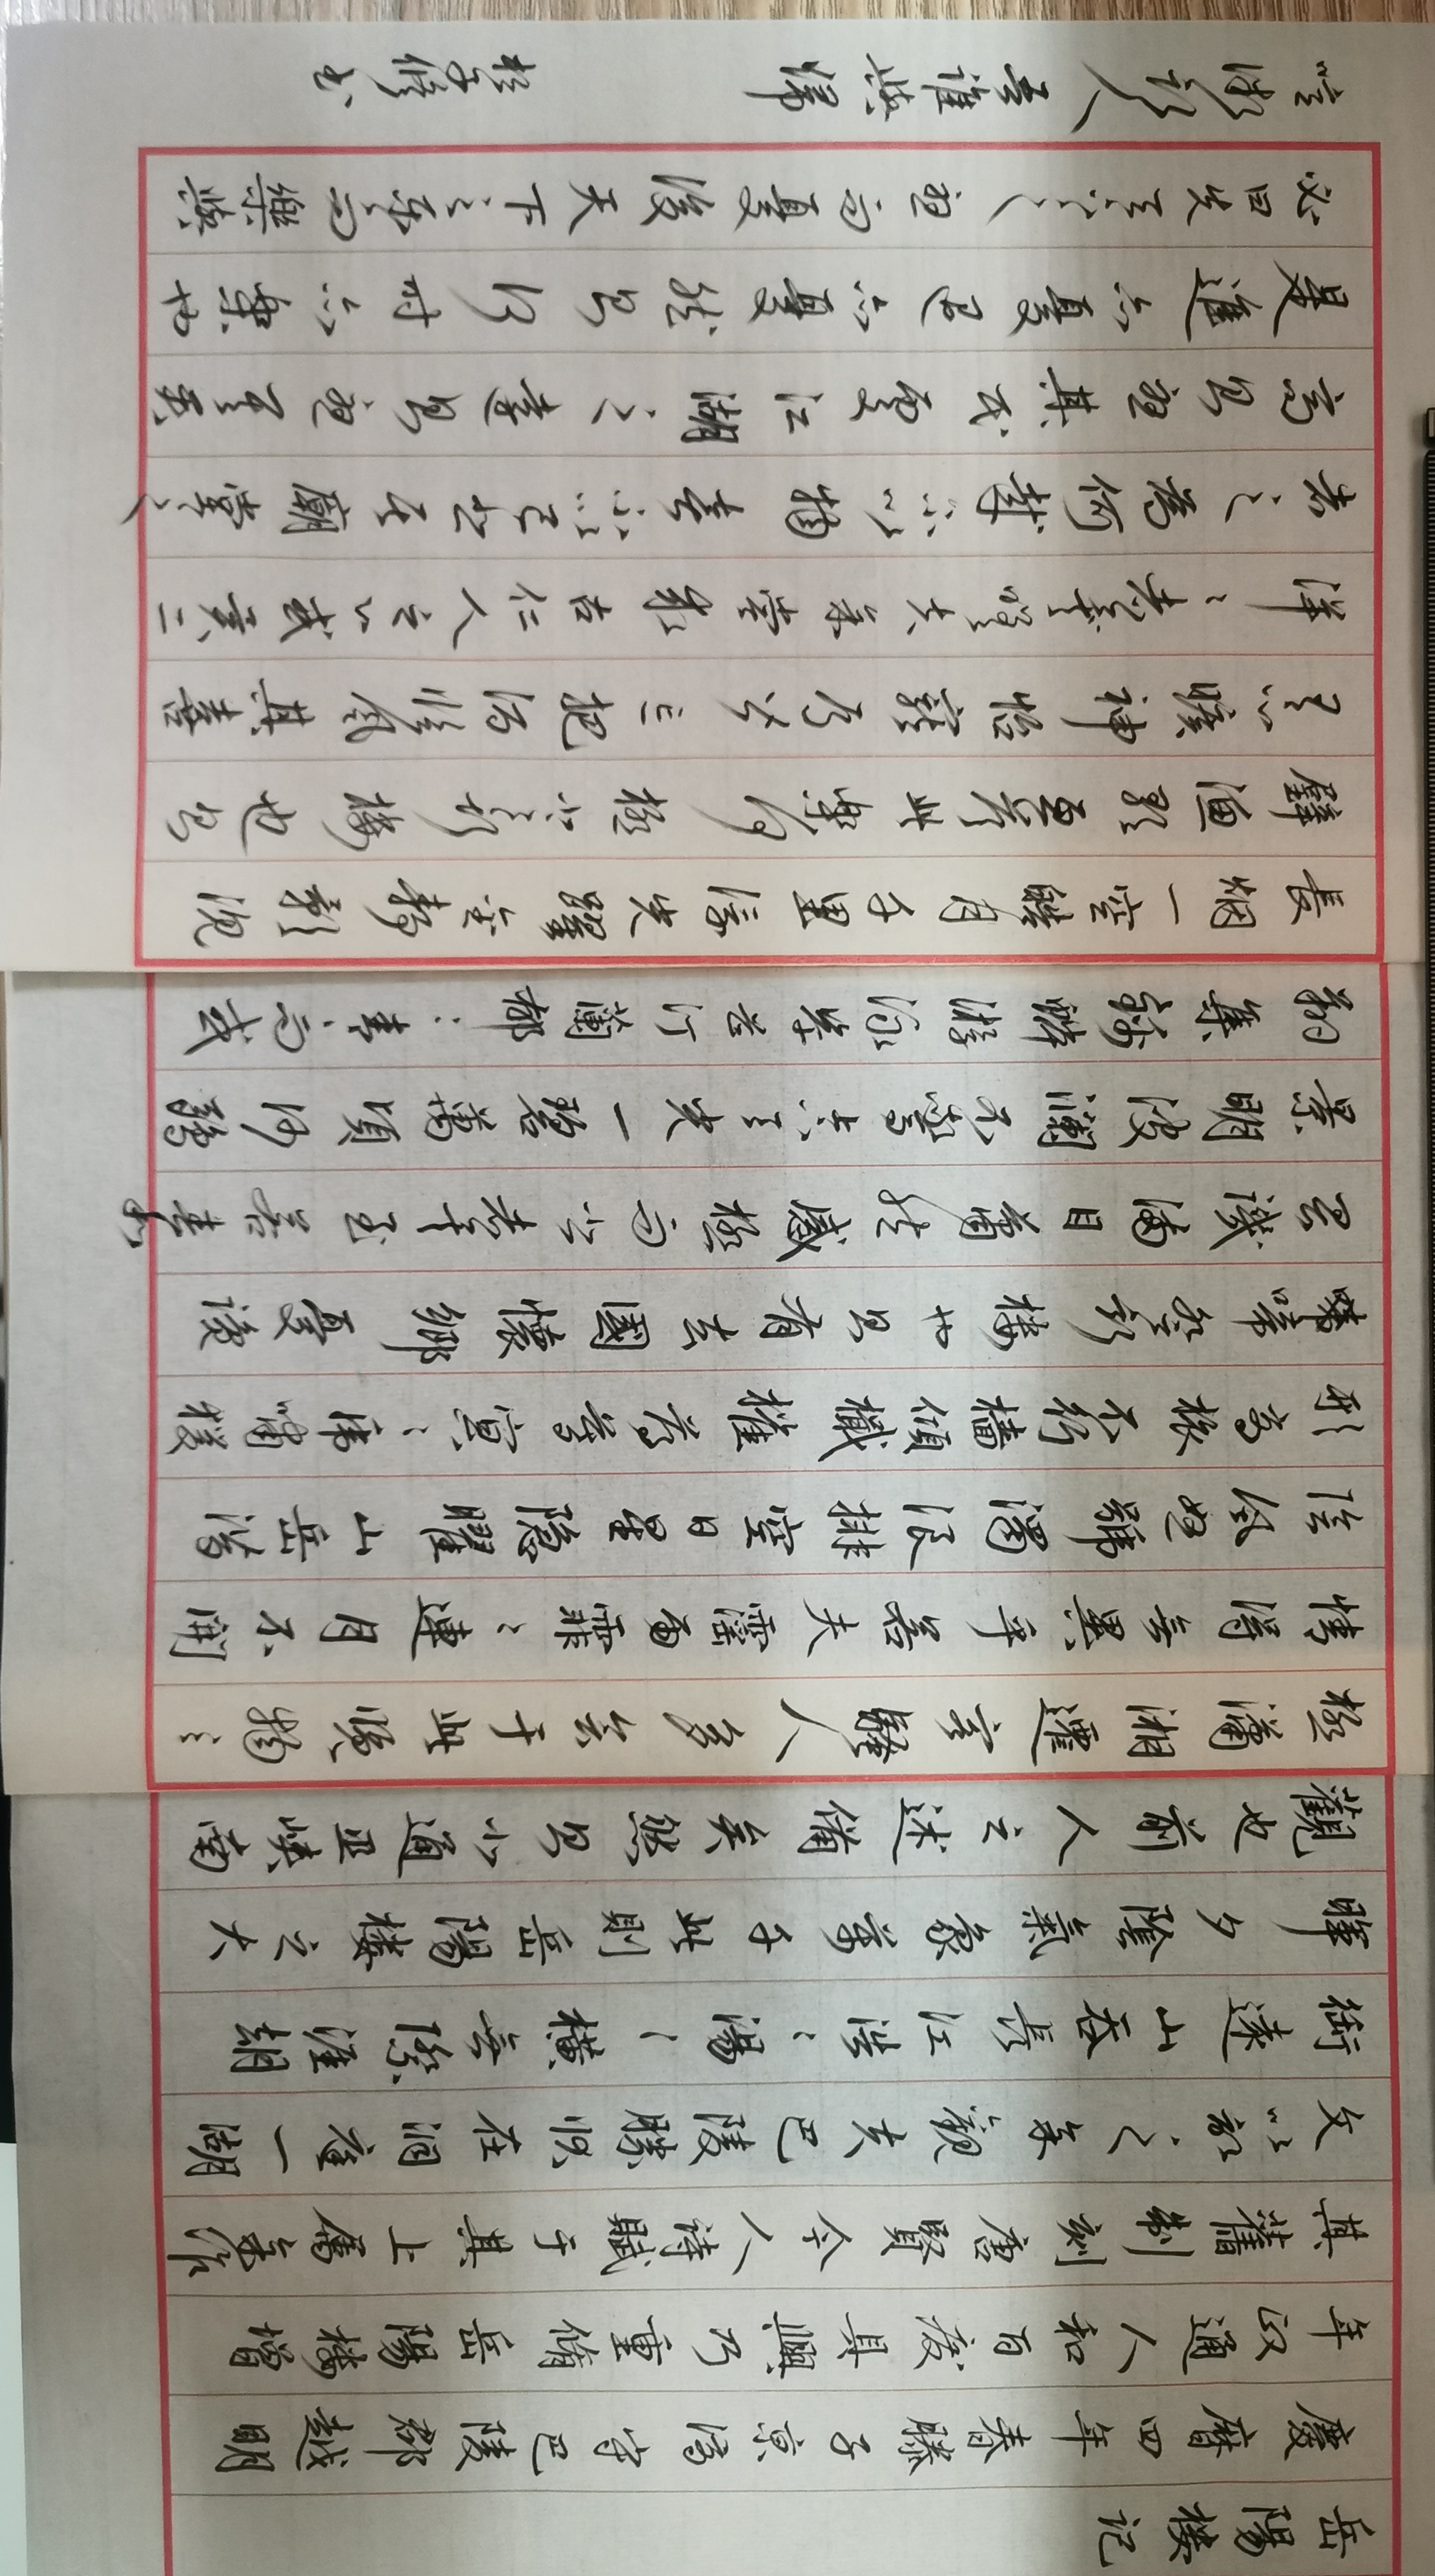 岳陽樓记
慶曆四年春滕子京谪守巴陵郡越明
年政通人和百废具興乃重脩岳陽樓增
其舊制刻唐賢今人詩賦于其上属予作
文以記之予觀夫巴陵勝状在洞庭一湖
銜遠山吞長江浩〻湯〻横无際涯朝
暉夕陰氣象萬千此則岳陽樓之大
觀也前人之述備矣然则北通巫峡南
極瀟湘遷客騷人多会于此覽物之
情得无異乎若夫霪雨霏〻連月不開
陰风怒號濁浪排空日星隱曜山岳潛
形商旅不行檣傾檝摧薄暮冥〻虎嘯猿
啼登斯樓也则有去國懷鄉憂讒
畏譏滿目蕭然感極而悲者乎至若春和
景明波瀾不驚上下天光一碧萬頃沙鷗
翔集錦鱗游泳岸芷汀蘭郁〻青〻而或
長烟一空皓月千里浮光躍金静影沉
璧渔歌互答此樂何極登斯樓也则
有心曠神怡寵辱皆忘把酒临风其喜
洋〻者矣嗟夫予嘗求古仁人之心或異二
者之為何哉不以物喜不以己悲居廟堂之
高则憂其民處江湖之遠则憂其君
是進亦憂退亦憂然则何时而樂也
必曰先天下之憂而憂後天下之樂而樂歟
噫微斯人吾谁與歸